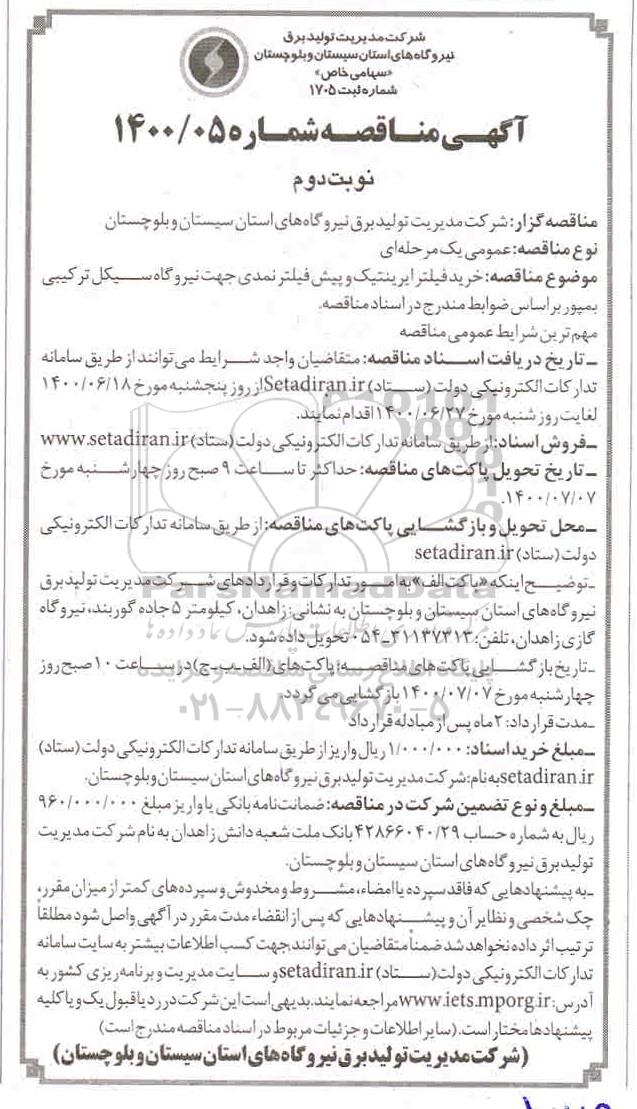 شرکت مدیریت تولید برق
نیروگاه‌های استان سیستان و بلوچستان
«سهامی خاص»
شماره ثبت ۱۷۰۵
آگهی مناقصه شماره ۱۴۰۰/۰۵
نوبت دوم
مناقصه گزار: شرکت مدیریت تولید برق نیروگاه‌های استان سیستان و بلوچستان
نوع مناقصه: عمومی یک مرحله‌ای
موضوع مناقصه: خرید فیلتر ایرینتیک و پیش فیلتر نمدی جهت نیروگاه سیکل ترکیبی
بمپور بر اساس ضوابط مندرج در اسناد مناقصه.
مهم ترین شرایط عمومی مناقصه
ـ تاریخ دریافت اسناد مناقصه: متقاضیان واجد شرایط می‌توانند از طریق سامانه
تدارکات الکترونیکی دولت (ستاد) Setadiran.ir از روز پنجشنبه مورخ ۱۴۰۰/۰۶/۱۸
لغایت روز شنبه مورخ ۱۴۰۰/۰۶/۲۷ اقدام نمایند.
ـ فروش اسناد: از طریق سامانه تدارکات الکترونیکی دولت (ستاد) www.setadiran.ir
ـ تاریخ تحویل پاکت‌های مناقصه: حداکثر تا ساعت ۹ صبح روز چهارشنبه مورخ
۱۴۰۰/۰۷/۰۷.
ـ محل تحویل و بازگشایی پاکت‌های مناقصه: از طریق سامانه تدارکات الکترونیکی
دولت (ستاد) setadiran.ir
ـ توضیح اینکه «پاکت الف» به امور تدارکات و قراردادهای شرکت مدیریت تولید برق
نیروگاه‌های استان سیستان و بلوچستان به نشانی: زاهدان، کیلومتر ۵ جاده گوربند، نیروگاه
گازی زاهدان، تلفن: ۳۱۱۳۷۳۱۳ـ۰۵۴ تحویل داده شود.
ـ تاریخ بازگشایی پاکت‌های مناقصه: پاکت‌های (الف-ب-ج) در ساعت ۱۰ صبح روز
چهارشنبه مورخ ۱۴۰۰/۰۷/۰۷ بازگشایی می گردد.
ـ مدت قرارداد: ۲ ماه پس از مبادله قرارداد
ـ مبلغ خرید اسناد: ۱/۰۰۰/۰۰۰ ریال واریز از طریق سامانه تدارکات الکترونیکی دولت (ستاد)
setadiran.ir به نام: شرکت مدیریت تولید برق نیروگاه‌های استان سیستان و بلوچستان.
ـ مبلغ و نوع تضمین شرکت در مناقصه: ضمانت‌نامه بانکی یا واریز مبلغ ۹۶۰/۰۰۰/۰۰۰
ریال به شماره حساب ۴۲۸۶۶۰۴۰/۲۹ بانک ملت شعبه دانش زاهدان به نام شرکت مدیریت
تولید برق نیروگاه‌های استان سیستان و بلوچستان.
ـ به پیشنهادهایی که فاقد سپرده یا امضاء، مشروط و مخدوش و سپرده‌های کمتر از میزان مقرر،
چک شخصی و نظایر آن و پیشنهادهایی که پس از انقضاء مدت مقرر در آگهی واصل شود مطلقاً
ترتیب اثر داده نخواهد شد ضمناً متقاضیان می‌توانند جهت کسب اطلاعات بیشتر به سایت سامانه
تدارکات الکترونیکی دولت (ستاد) setadiran.ir و سایت مدیریت و برنامه‌ریزی کشور به
آدرس: www.iets.mporg.ir مراجعه نمایند. بدیهی است این شرکت در رد یا قبول یک و یا کلیه
پیشنهادها مختار است. (سایر اطلاعات و جزئیات مربوط در اسناد مناقصه مندرج است)
(شرکت مدیریت تولید برق نیروگاه‌های استان سیستان و بلوچستان)
ParsNamadData
۰۲۱-۸۸۳۴۹۶۷۰-۵